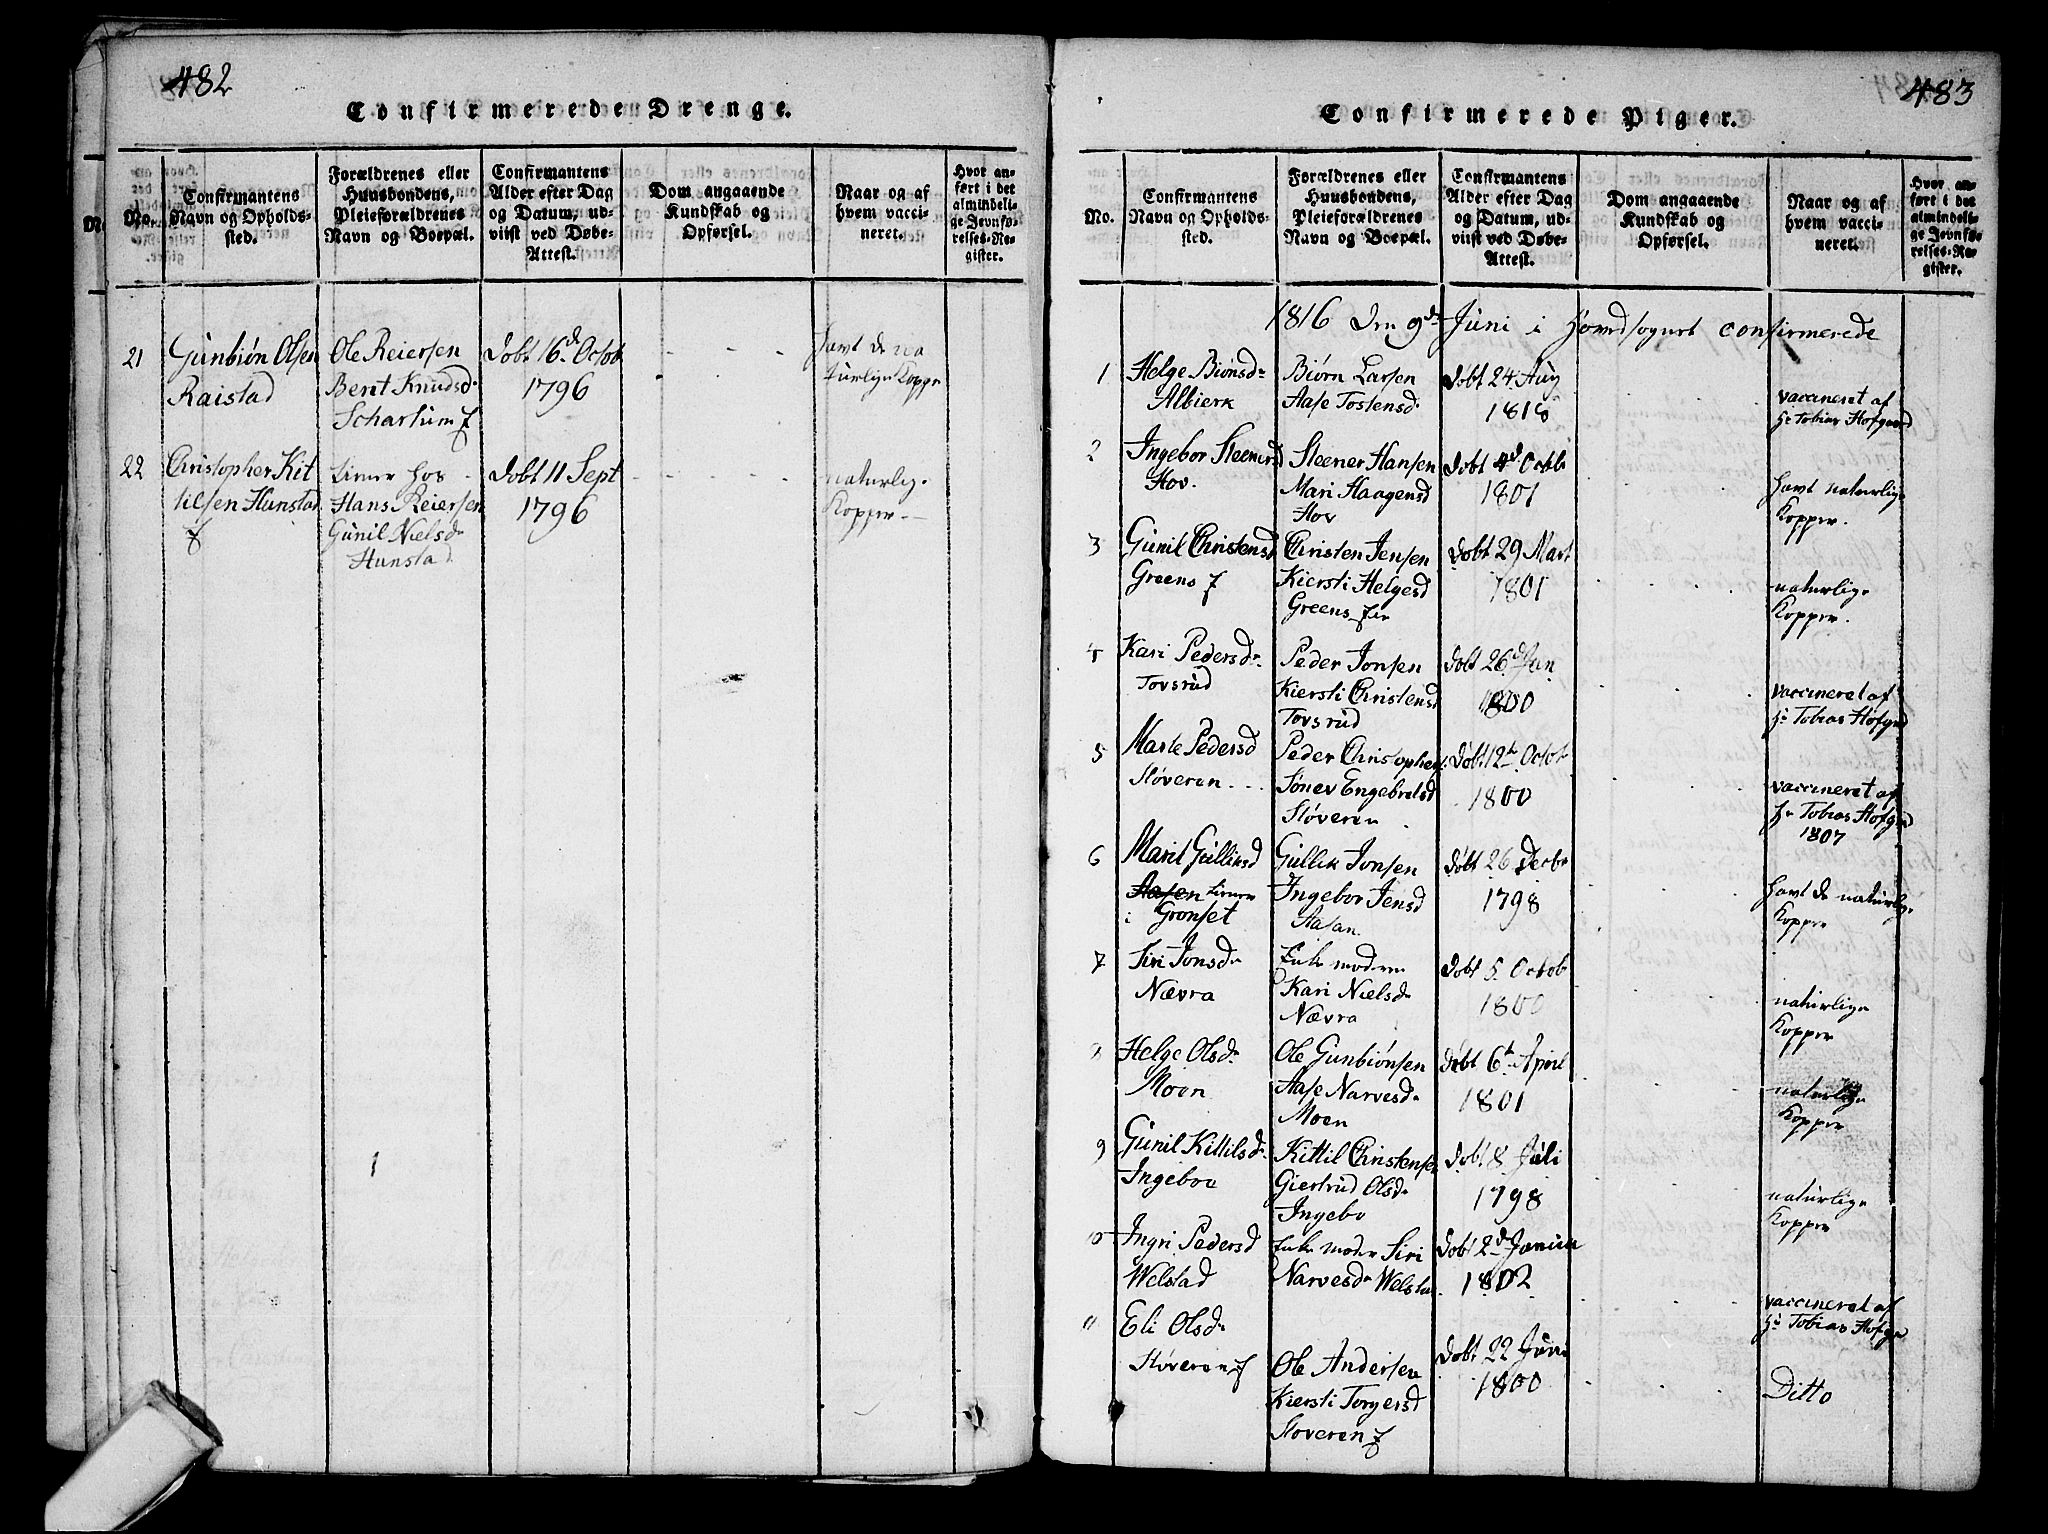 482
Confirmerede Drenge.
No.
Confirmantens
Navn og Opholds-
sted.
Forældrenes eller
Huusbondens,
Pleieforældrenes
Navn og Boepæl.
Confirmantens
Alder efter Dag
og Datum, ud-
viist ved Døbe-
Attest.
Dom angaaende
Kundskab og
Opførsel.
Naar og af
hvem vacci-
neret.
Hvor an-
ført i det
almindeli-
ge Jevnfø-
relses-Re-
gister.
21
Gunbiön Olsen
Raistad
Ole Reiersen
Berit Knudsd
Schartum
dobt 16d Octob
1796
havt de na
turlige Kopper
22
Christopher Kit
tilsen Hunstad
tiener hos
Hans Reiersen
Gunil Nielsd
Hunstad
dobt 11 Sept
1796
naturlige
Kopper
483
Confirmerede Piger.
No.
Confirmantens
Navn og Opholds-
sted.
Forældrenes eller
Huusbondens,
Pleieforældrenes
Navn og Boepæl.
Confirmantens
Alder efter Dag
og Datum, ud-
viist ved Døbe-
Attest.
Dom angaaende
Kundskab og
Opførsel.
Naar og af
hvem vacci-
neret.
Hvor an-
ført i det
almindeli-
ge Jevnfø-
relses-Re-
gister.
1816 den 9de Juni i Hovedsognet confirmerede
1
Helge Biönsdr
Albierk
Biørn Larsen
Aase Tostensd
dobt 24 Aug
vaccineret af
Hr Tobias Hofgaard
2
Ingebor Steenersd
Hov.
Steener Hansen
Mari Haagensd
Hov
dobt 4d Octbr
1801
havt naturlige
Kopper.
3
Gunil Christensd
Greens
Christen Jensen
Kiersti Helgesd
Greens
dobt 29 Mart
1801
naturlige
Kopper.
4
Kari Pedersdr
Tovsrud
Peder Jonsen
Kiersti Christensd
Tovsrud
dobt 26d Jan
1800
vaccineret af
Hr Tobias Hofgrd
5
Marte Pedersd
Støveren
Peder Christophers.
Engebretsd
Støveren
Døbt 12t Octob
1800
vaccineret af
Hr Tobias Hofgrd
1807
6
Marit Gulliksd
Aasen tiener
i Grønset
Gullik Jonsen
Ingebor Jensd
Aasan
Døbt 26 Decbr
1798
havt de naturlige
Kopper
7
Siri Jonsdr
Nævra
Enke moderen
Kari Nielsdr
Nævra
dobt 5 Octob
1800
naturlige
Kopper
8
Helge Olsdr
Moen
Ole Gunbiönsen
Aase Narvesdr
Moen
Døbt 6t April
1801
naturlige
Kopper
9
Gunil Kittilsdr
Ingeboe
Kittil Christensen
Giertrud Olsdr
Ingebo
dobt 8 Juli
1798
naturlige
Kopper
10
Ingri Pedersd
Welstad
Enke moder Siri
Narvesdr Welstad
dobt 2d Januar
1802
vaccineret af
Hr Tobias Hofgr
11
Eli Olsdr
Støveren
Ole Andersen
Kiersti Torgersd
Stoveren
dobt 22 Juni
1800
Ditto